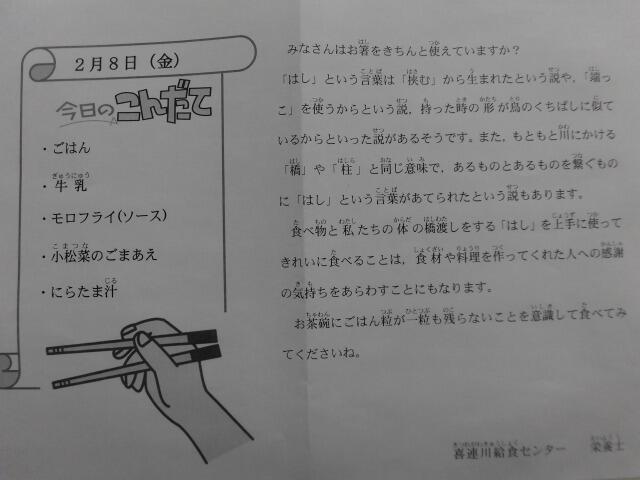 2月8日（金）
今日のこんだて
・ごはん
・牛乳
・モロフライ(ソース)
・小松菜のごまあえ
・にらたま汁
みなさんはお箸をきちんと使えていますか？
「はし」という言葉は「挟む」から生まれたという説や，「端っ
こ」を使うからという説，持った時の形が鳥のくちばしに似て
いるからといった説があるそうです。また，もともと川にかける
「橋」や「柱」と同じ意味で，あるものとあるものを繋ぐもの
に「はし」という言葉があてられたという説もあります。
食べ物と私たちの体の橋渡しをする「はし」を上手に使って
きれいに食べることは，食材や料理を作ってくれた人への感謝
の気持ちをあらわすことにもなります。
お茶碗にごはん粒が一粒も残らないことを意識して食べてみ
てくださいね。
喜連川給食センター　栄養士